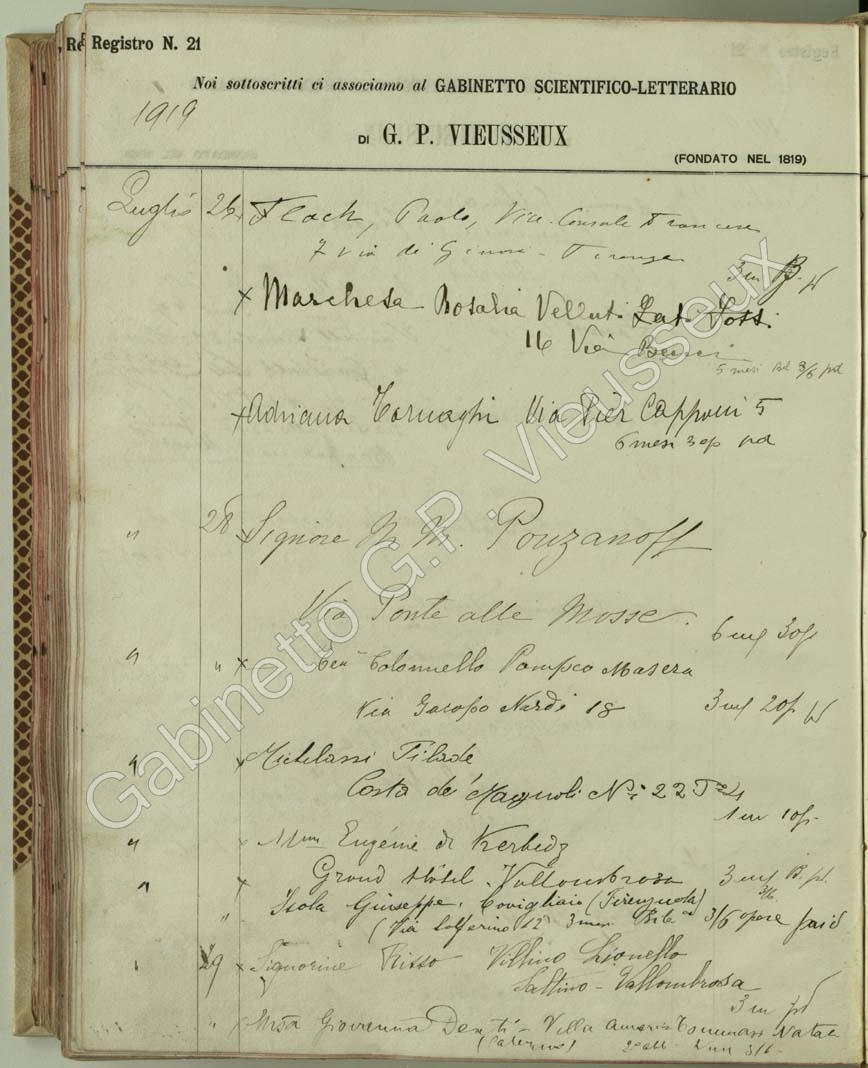 Registro N. 21
Noi sottoscritti ci associamo al GABINETTO SCIENTIFICO-LETTERARIO
1919
DI G. P. VIEUSSEUX
(FONDATO NEL 1819)
Luglio 26 Floch, Paolo, Vice-Console Francese
7 via de Ginori - Firenze
3 m B. pd
x Marchesa Rosalia Velluti Zati
16 Via
5 mesi 3/6 pd
x Adriana Tornaghi Via Pier Capponi 5
6 mesi 3 op pd
" 28 x Signore N. N. Pouzanoff
Via Ponte alle Mosse.
6 m 3 op
" " x Colonnello Pompeo Masera
Via Jacopo Nardi 18 3 m 2 op pd
" x Michelassi Pilade
Costa de' Magnoli No 22
1 m 1 op
" x Mme Eugénie de Kerbedz
" x Grand Hôtel Vallombrosa 3 m B. pd.
3/6
" Isola Giuseppe, Covigliaio (Firenzuola)
(Via Solferino 12) 3 mesi 3/6 opere paid
29 x Signorine Risso Villino Lionello
Saltino - Vallombrosa
3 m pd
" Giovanna Villa Tommaso Natale
(Palermo) 3/6
Gabinetto G.P. Vieusseux